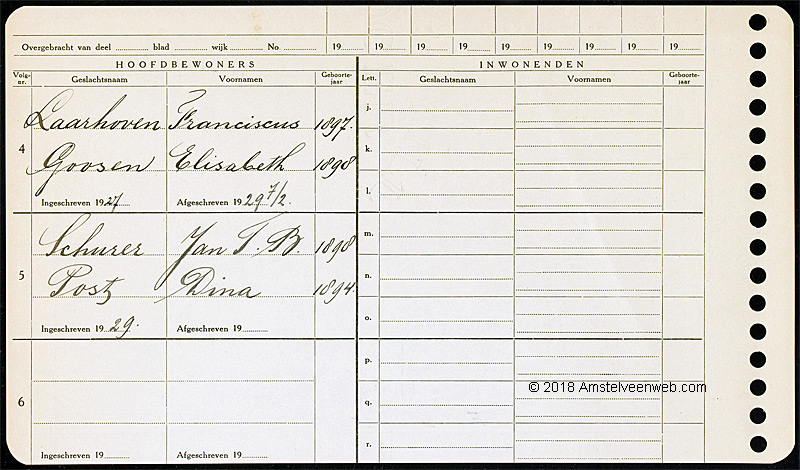 Overgebracht van deel ........ blad ........ wijk ........ No ........ 19.... 19.... 19.... 19.... 19.... 19.... 19.... 19.... 19....
HOOFDBEWONERS INWONENDEN
Volg-nr. Geslachtsnaam Voornamen Geboorte-jaar Lett. Geslachtsnaam Voornamen Geboorte-jaar
j.
Laarhoven Franciscus 1897.
4 k.
Goosen Elisabeth 1898
l.
Ingeschreven 1927 Afgeschreven 1929 7/2.
m.
Schurer Jan T. B. 1898
5 n.
Post Dina 1894.
o.
Ingeschreven 1929. Afgeschreven 19........
p.
© 2018 Amstelveenweb.com
6 q.
r.
Ingeschreven 19........ Afgeschreven 19........